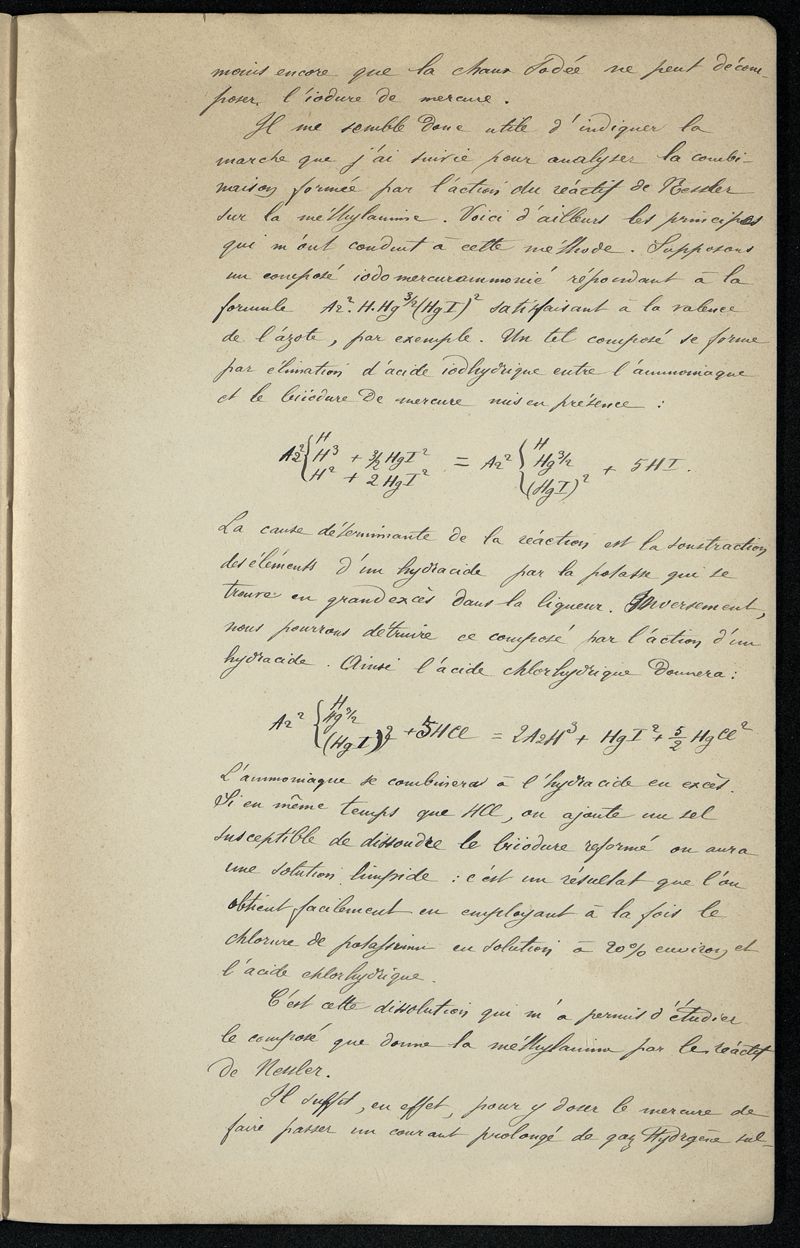 moins encore que la chaux sodée ne peut décom-
poser l'iodure de mercure.
Il me semble donc utile d'indiquer la
marche que j'ai suivie pour analyser la combi-
naison formée par l'action du réactif de Nessler
sur la méthylamine. Voici d'ailleurs les principes
qui m'ont conduit à cette méthode. Supposons
un composé iodomercurammonié répondant à la
formule Az². H. Hg 3/2 (HgI)² satisfaisant à la valence
de l'azote, par exemple. Un tel composé se forme
par élimation d'acide iodhydrique entre l'ammoniaque
et le biiodure de mercure mis en présence :
Az² { H
H³ + 3/2 HgI²
H² + 2 HgI² = Az² { H
Hg 3/2
(HgI)² + 5HI.
La cause déterminante de la réaction est la soustraction
des éléments d'un hydracide par la potasse qui se
trouve en grand excès dans la liqueur. Inversement,
nous pourrons détruire ce composé par l'action d'un
hydracide. Ainsi l'acide chlorhydrique donnera :
Az² { H
Hg 3/2
(HgI)² + 5HCl = 2AzH³ + HgI² + 5/2 HgCl²
L'ammoniaque se combinera à l'hydracide en excès.
Si en même temps que HCl, on ajoute un sel
susceptible de dissoudre le biiodure reformé on aura
une solution limpide : c'est un résultat que l'on
obtient facilement en employant à la fois le
chlorure de potassium en solution à 20% environ et
l'acide chlorhydrique.
C'est cette dissolution qui m'a permis d'étudier
le composé que donne la méthylamine par le réactif
de Nessler.
Il suffit, en effet, pour y doser le mercure de
faire passer un courant prolongé de gaz Hydrgène sul-